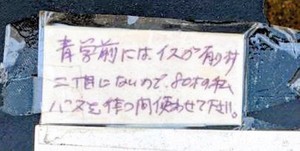 青学前には、イスが有り丼
二丁目にないので、80才の私
バスを待つ間使わせて下さい。